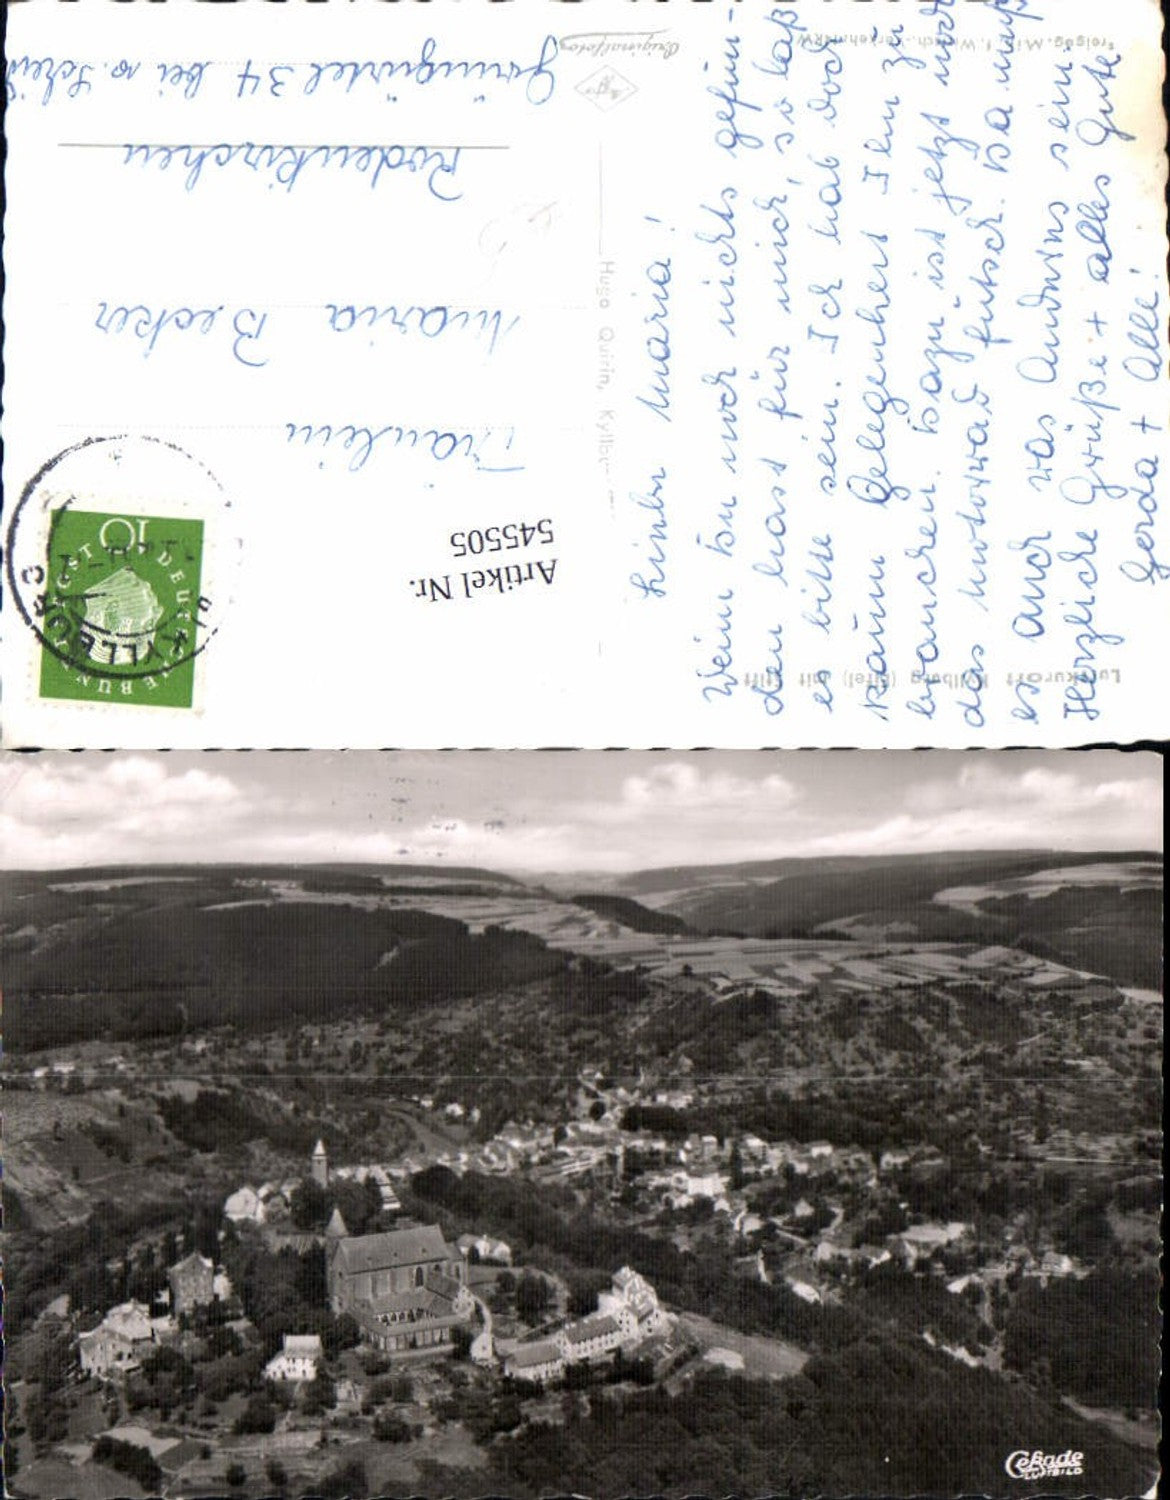 Liebe Maria!
Wenn Du noch nichts gefun-
den hast für mich, so laß
es bitte sein. Ich hab doch
kaum Gelegenheit Ihn zu
brauchen. Dazu ist jetzt noch
das Motorrad futsch. Da muß
es auch was Andres sein
Herzliche Grüße + alles Gute
Gerda + Alle!
Fräulein
Maria Becker
Rodenkirchen
Grüngürtel 34 bei v. Scheid
Luftkurort Kyllburg (Eifel) mit Stift
Hugo Quirin, Kyllburg
Originalfoto
Agfa
Freigeg. Min. f. Wirtsch. Verkehr NRW
Artikel Nr.
545505
DEUTSCHE BUNDESPOST
10
KYLLBURG
Cekade
LUFTBILD